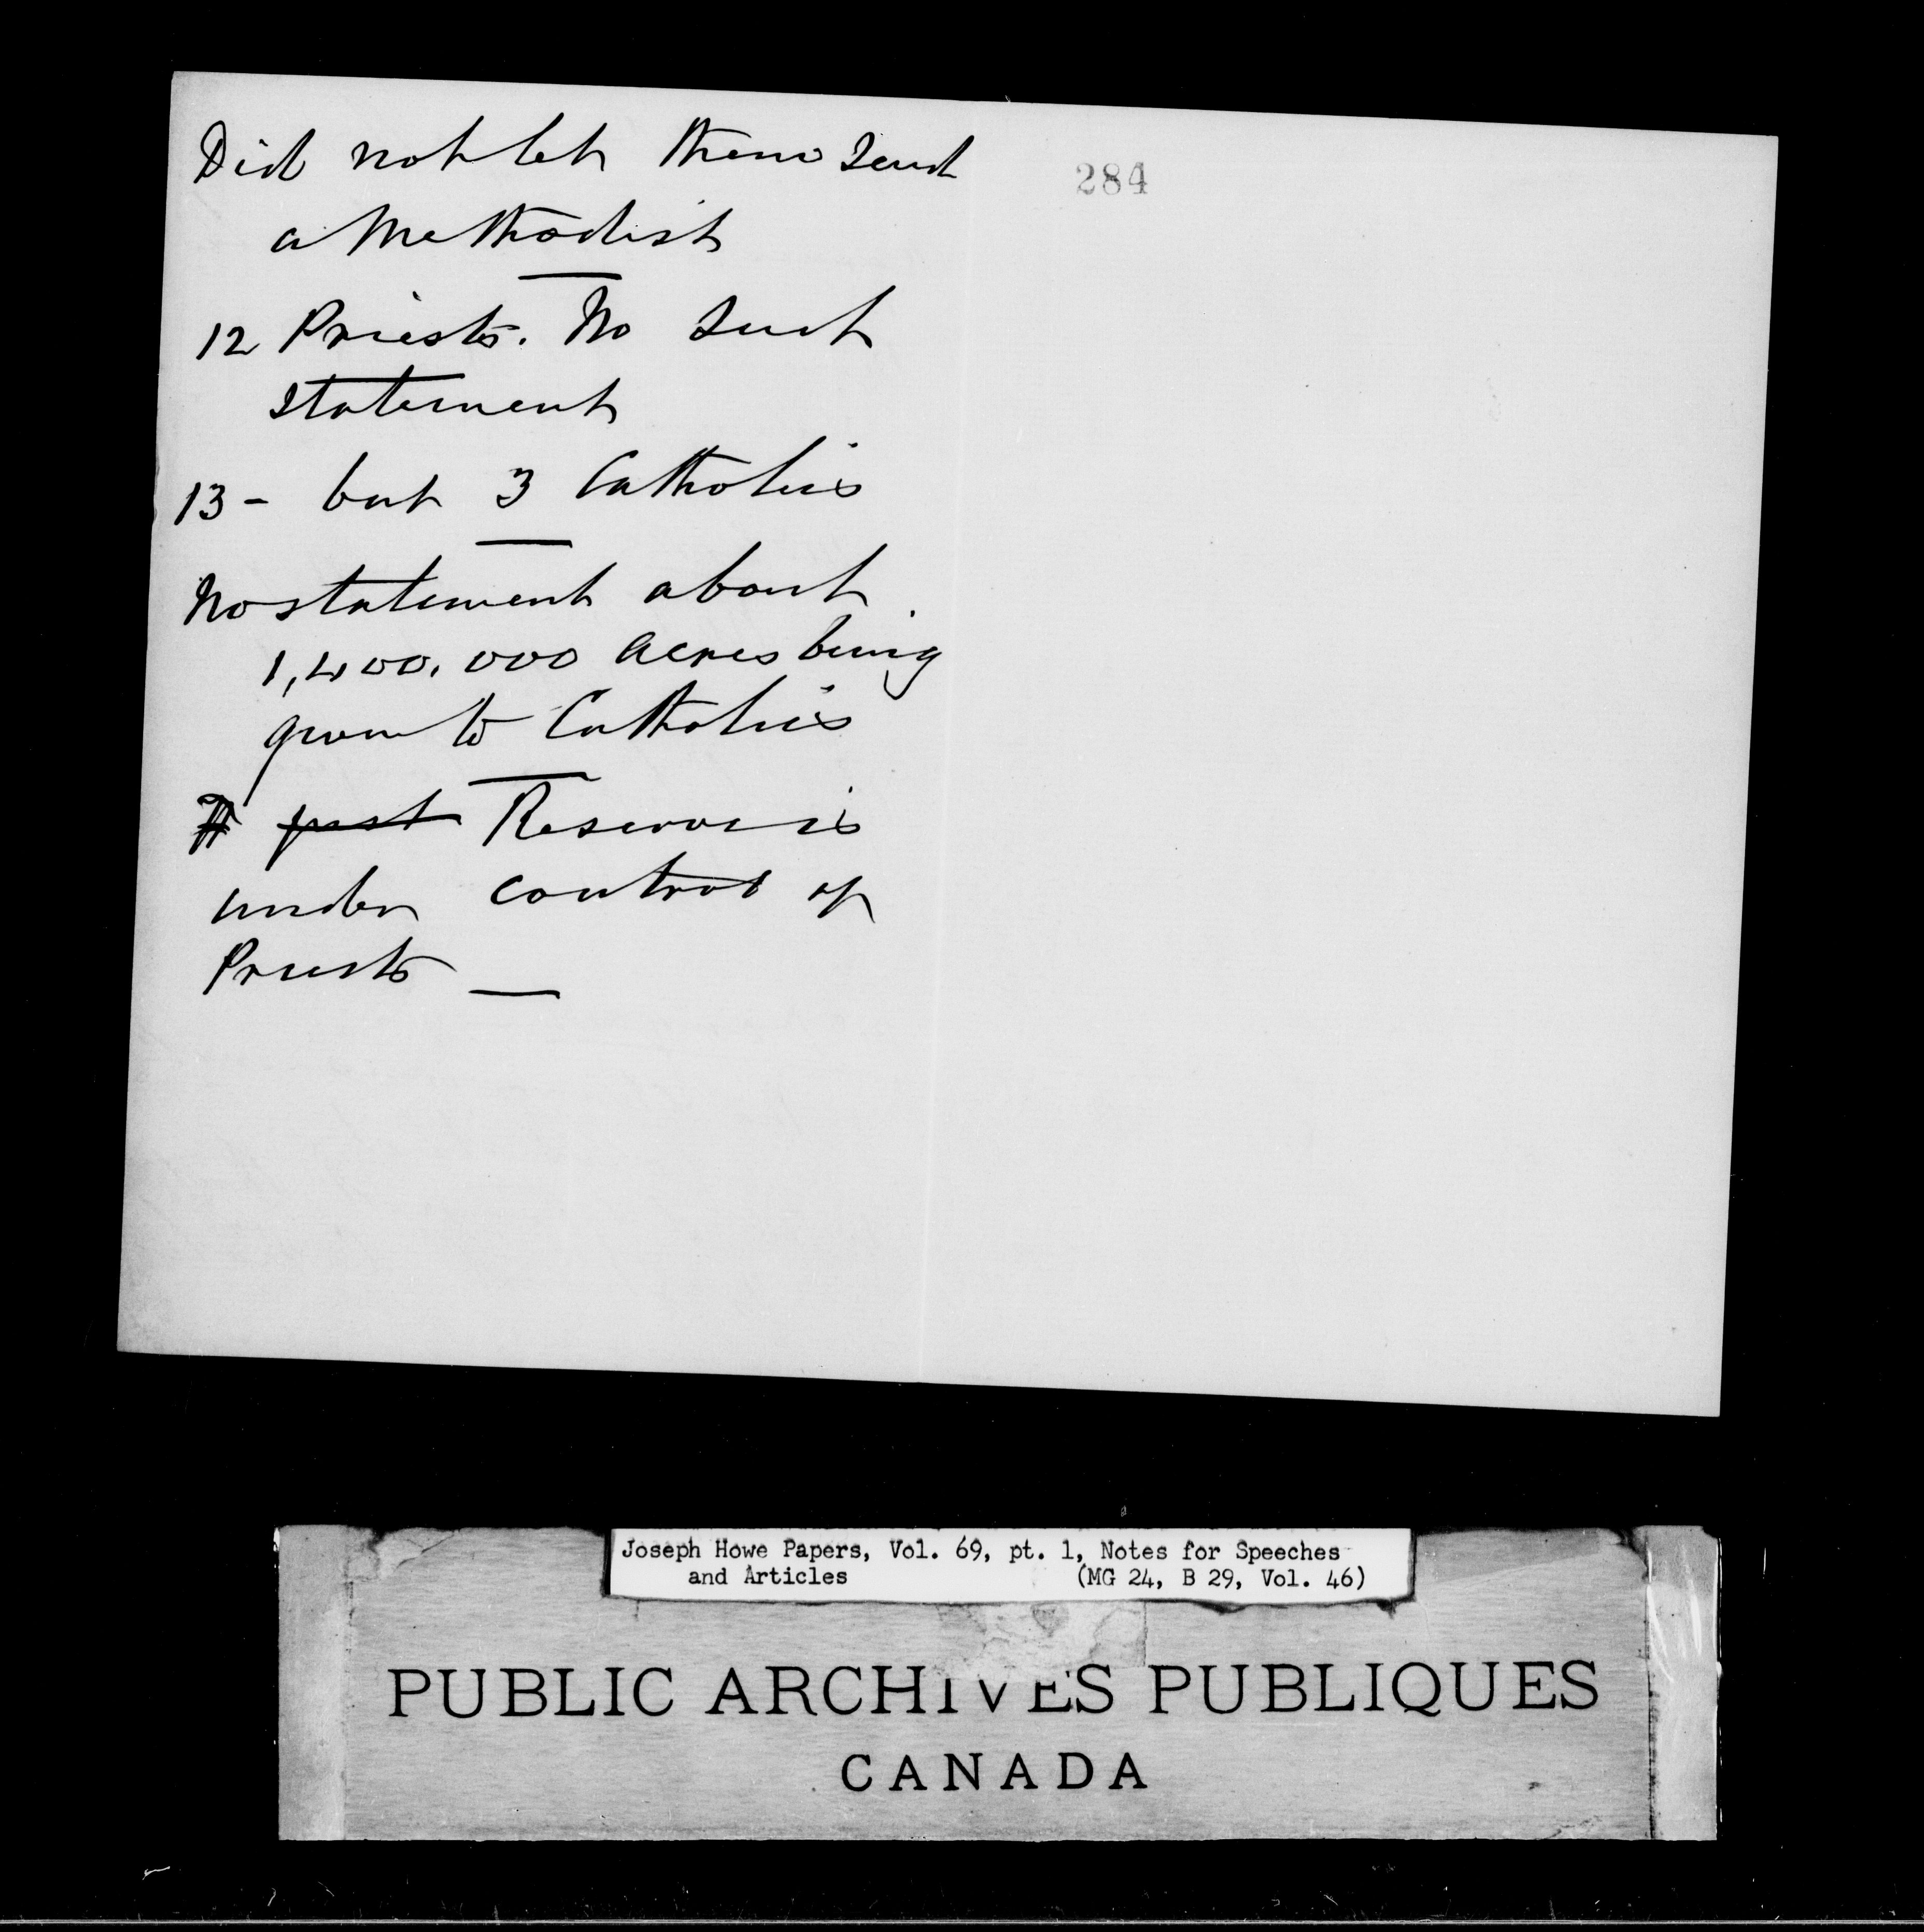 Did not let them send
a Methodist
12 Priests. No such
statement
13 - but 3 Catholics
No statement about
1,400,000 acres being
given to Catholics
just Reserves is
under control of
Priests —
284
Joseph Howe Papers, Vol. 69, pt. 1, Notes for Speeches
and Articles (MG 24, B 29, Vol. 46)
PUBLIC ARCHIVES PUBLIQUES
CANADA